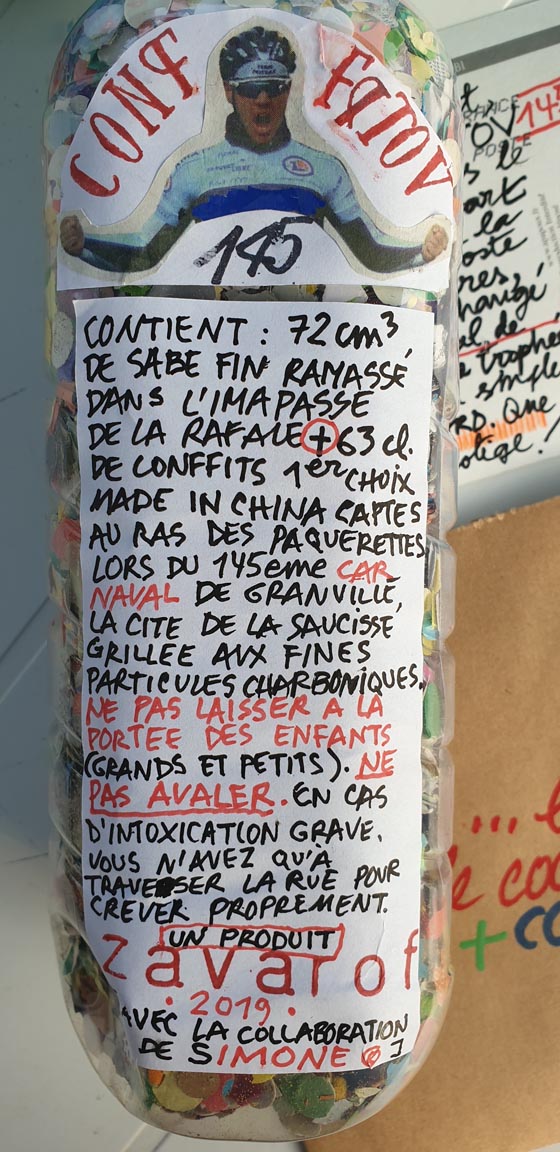 CONF
FATOV
145
CONTIENT : 72 cm3,
DE SABE FIN RAMASSÉ
DANS L'IMAPASSE
DE LA RAFALE + 63 cl.
DE CONFFITS 1er CHOIX
MADE IN CHINA CAPTES
AU RAS DES PAQUERETTES
LORS DU 145eme CAR
NAVAL DE GRANVILLE,
LA CITE DE LA SAUCISSE
GRILLEE AUX FINES
PARTICULES CHARBONIQUES.
NE PAS LAISSER A LA
PORTEE DES ENFANTS
(GRANDS ET PETITS). NE
PAS AVALER. EN CAS
D'INTOXICATION GRAVE.
VOUS N'AVEZ QU'À
TRAVERSER LA RUE POUR
CREVER PROPREMENT.
UN PRODUIT
zavatof
. 2019 .
AVEC LA COLLABORATION
DE SIMONE
OV 145
POSTE
le
art
la
oste
res,
hangé
de
trophée
simple
RD. Que
... 
+ CO